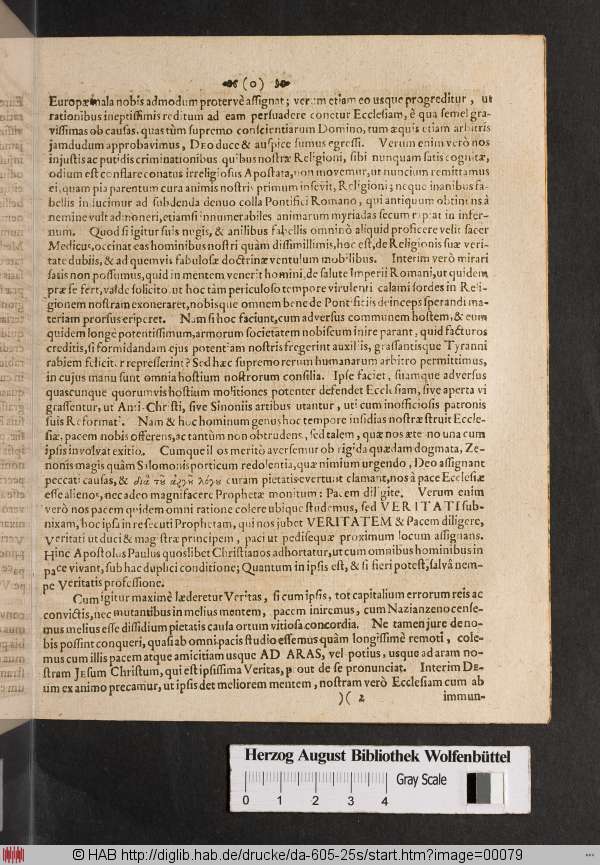 (o)
Europæ mala nobis admodum protervè assignat; verum etiam eo usque progreditur, ut
rationibus ineptissimis reditum ad eam persuadere conetur Ecclesiam, è qua semel gra-
vissimas ob causas, quas tùm supremo conscientiarum Domino, tum æquis etiam arbitris
jamdudum approbavimus, DEO duce & auspice sumus egressi. Verum enim verò nos
injustis ac putidis criminationibus quibus nostræ Religioni, sibi nunquam satis cognitæ,
odium est conflare conatus irreligiosus Apostata, non movemur, ut nuncium remittamus
ei, quam pia parentum cura animis nostris primum insevit, Religioni; neque inanibus fa-
bellis inducimur ad subdenda denuo colla Pontifici Romano, qui antiquum obtinens à
nemine vult admoneri, etiamsi innumerabiles animarum myriadas secum rapiat in infer-
num. Quod si igitur suis nugis, & anilibus fabellis omninò aliquid proficere velit sacer
Medicus, occinat eas hominibus nostri quàm dissimillimis, hoc est, de Religionis suæ veri-
tate dubiis, & ad quemvis fabulosæ doctrinæ ventulum mobilibus. Interim verò mirari
satis non possumus, quid in mentem venerit homini, de salute Imperii Romani, ut quidem
præ se fert, valde solicito, ut hoc tàm periculoso tempore virulenti calami sordes in Reli-
gionem nostram exoneraret, nobisque omnem bene de Pontificiis deinceps sperandi ma-
teriam prorsus eriperet. Nam si hoc faciunt, cum adversus communem hostem, & eum
quidem longè potentissimum, armorum societatem nobiscum inire parant, quid facturos
creditis, si formidandam ejus potentiam nostris fregerint auxiliis, grassantisque Tyranni
rabiem feliciter represserint? Sed hæc supremo rerum humanarum arbitro permittimus,
in cujus manu sunt omnia hostium nostrorum consilia. Ipse faciet, suamque adversus
quascunque quorumvis hostium molitiones potenter defendet Ecclesiam, sive aperta vi
grassentur, ut Anti-Christi, sive Sinoniis artibus utantur, uti cum inofficiosis patronis
suis Reformati. Nam & hoc hominum genus hoc tempore insidias nostræ struit Eccle-
siæ, pacem nobis offerens, ac tantùm non obtrudens, sed talem, quæ nos æterno una cum
ipsis involvat exitio. Cumque illos meritò aversemur ob rigida quædam dogmata, Ze-
nonis magis quàm Salomonis porticum redolentia, quæ nimium urgendo, DEO assignant
peccati causas, & διὰ τῶ ἀργῶ λόγω curam pietatis evertunt, clamant, nos à pace Ecclesiæ
esse alienos, nec adeo magnifacere Prophetæ monitum: Pacem diligite. Verum enim
verò nos pacem quidem omni ratione colere ubique studemus, sed VERITATI sub-
nixam, hoc ipsa in re secuti Prophetam, qui nos jubet VERITATEM & Pacem diligere,
Veritati ut duci & magistræ principem, paci ut pedisequæ proximum locum assignans.
Hinc Apostolus Paulus quoslibet Christianos adhortatur, ut cum omnibus hominibus in
pace vivant, sub hac duplici conditione; Quantum in ipsis est, & si fieri potest, salvâ nem-
pe Veritatis professione.
Cum igitur maximè læderetur Veritas, si cum ipsis, tot capitalium errorum reis ac
convictis, nec mutantibus in melius mentem, pacem iniremus, cum Nazianzeno cense-
mus melius esse dissidium pietatis causa ortum vitiosa concordia. Ne tamen jure de no-
bis possint conqueri, quasi ab omni pacis studio essemus quàm longissimè remoti, cole-
mus cum illis pacem atque amicitiam usque AD ARAS, vel potius, usque ad aram no-
stram JESUM Christum, qui est ipsissima Veritas, prout de se pronunciat. Interim DE-
um ex animo precamur, ut ipsis det meliorem mentem, nostram verò Ecclesiam cum ab
)( 2 immun-
Herzog August Bibliothek Wolfenbüttel
0 1 2 3 4 Gray Scale
© HAB http://diglib.hab.de/drucke/da-605-25s/start.htm?image=00079